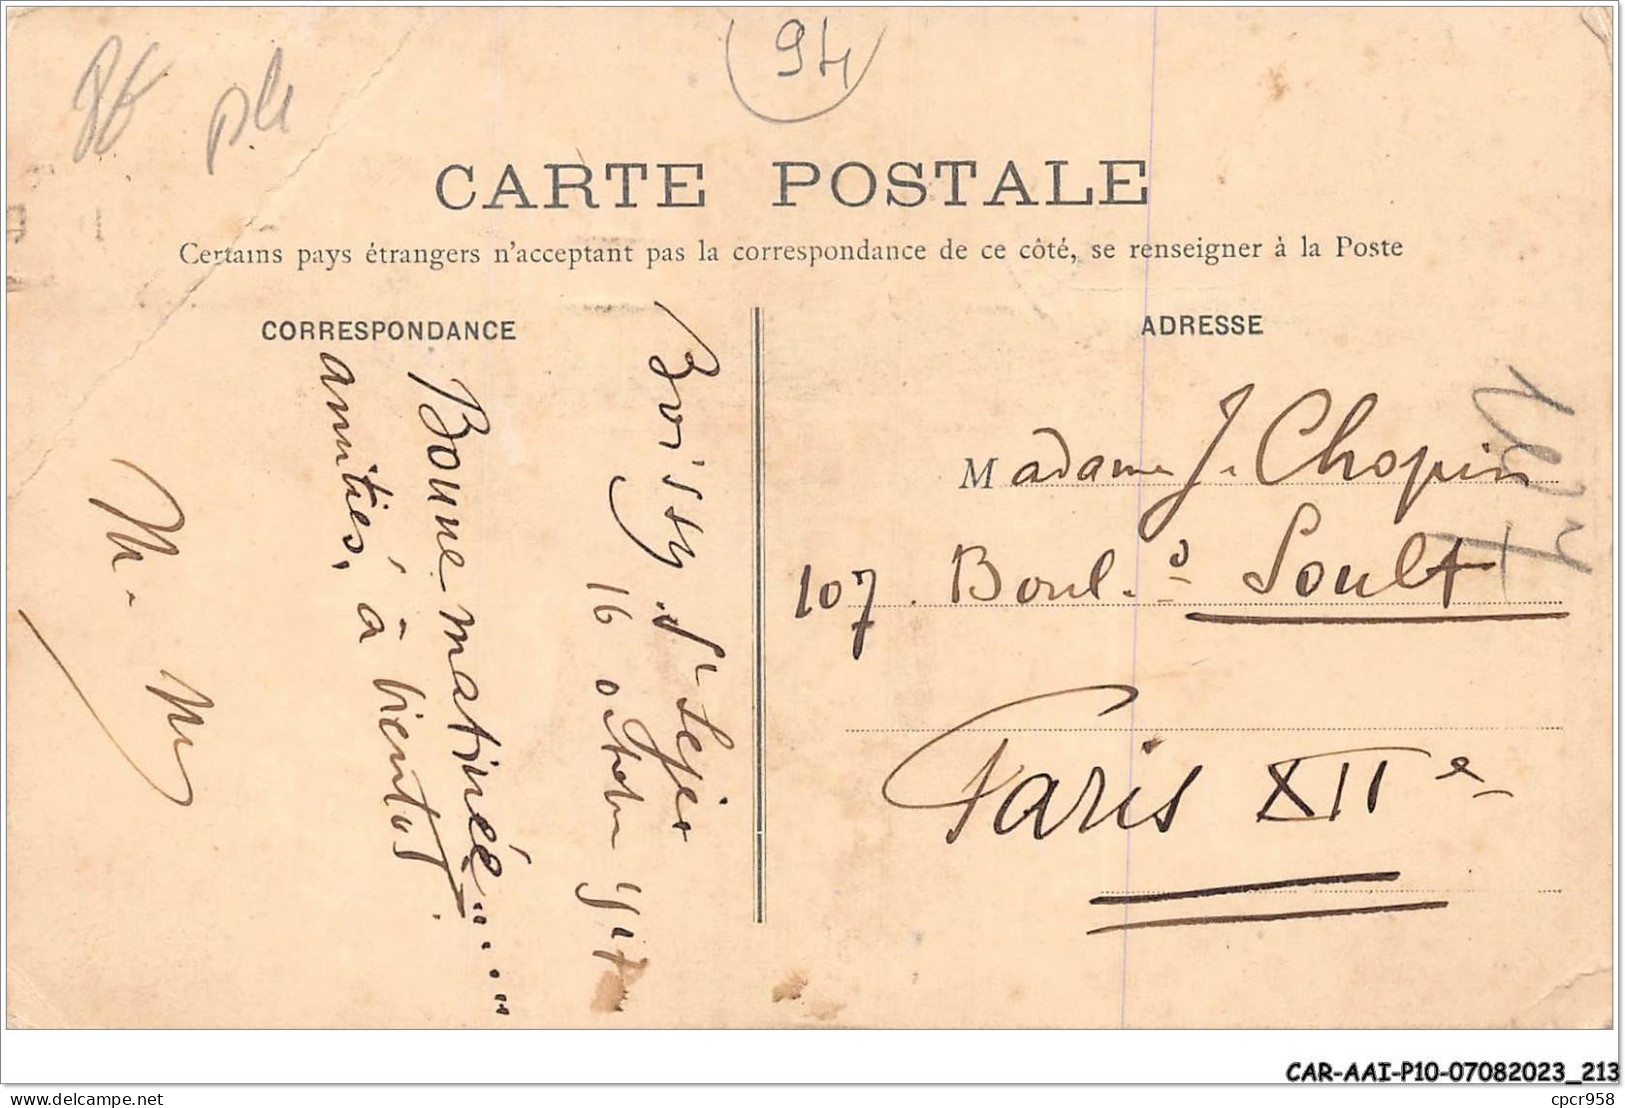 94
CARTE POSTALE
Certains pays étrangers n'acceptant pas la correspondance de ce côté, se renseigner à la Poste
CORRESPONDANCE
Boissy St Leger
16 octobre
Bonne matinée.......
amitiés, à bientôt.
M. M
ADRESSE
Madame J. Chopin
107. Boul.d Soult
Paris XIIe
CAR-AAI-P10-07082023_213
delcampe.net
cpcr958